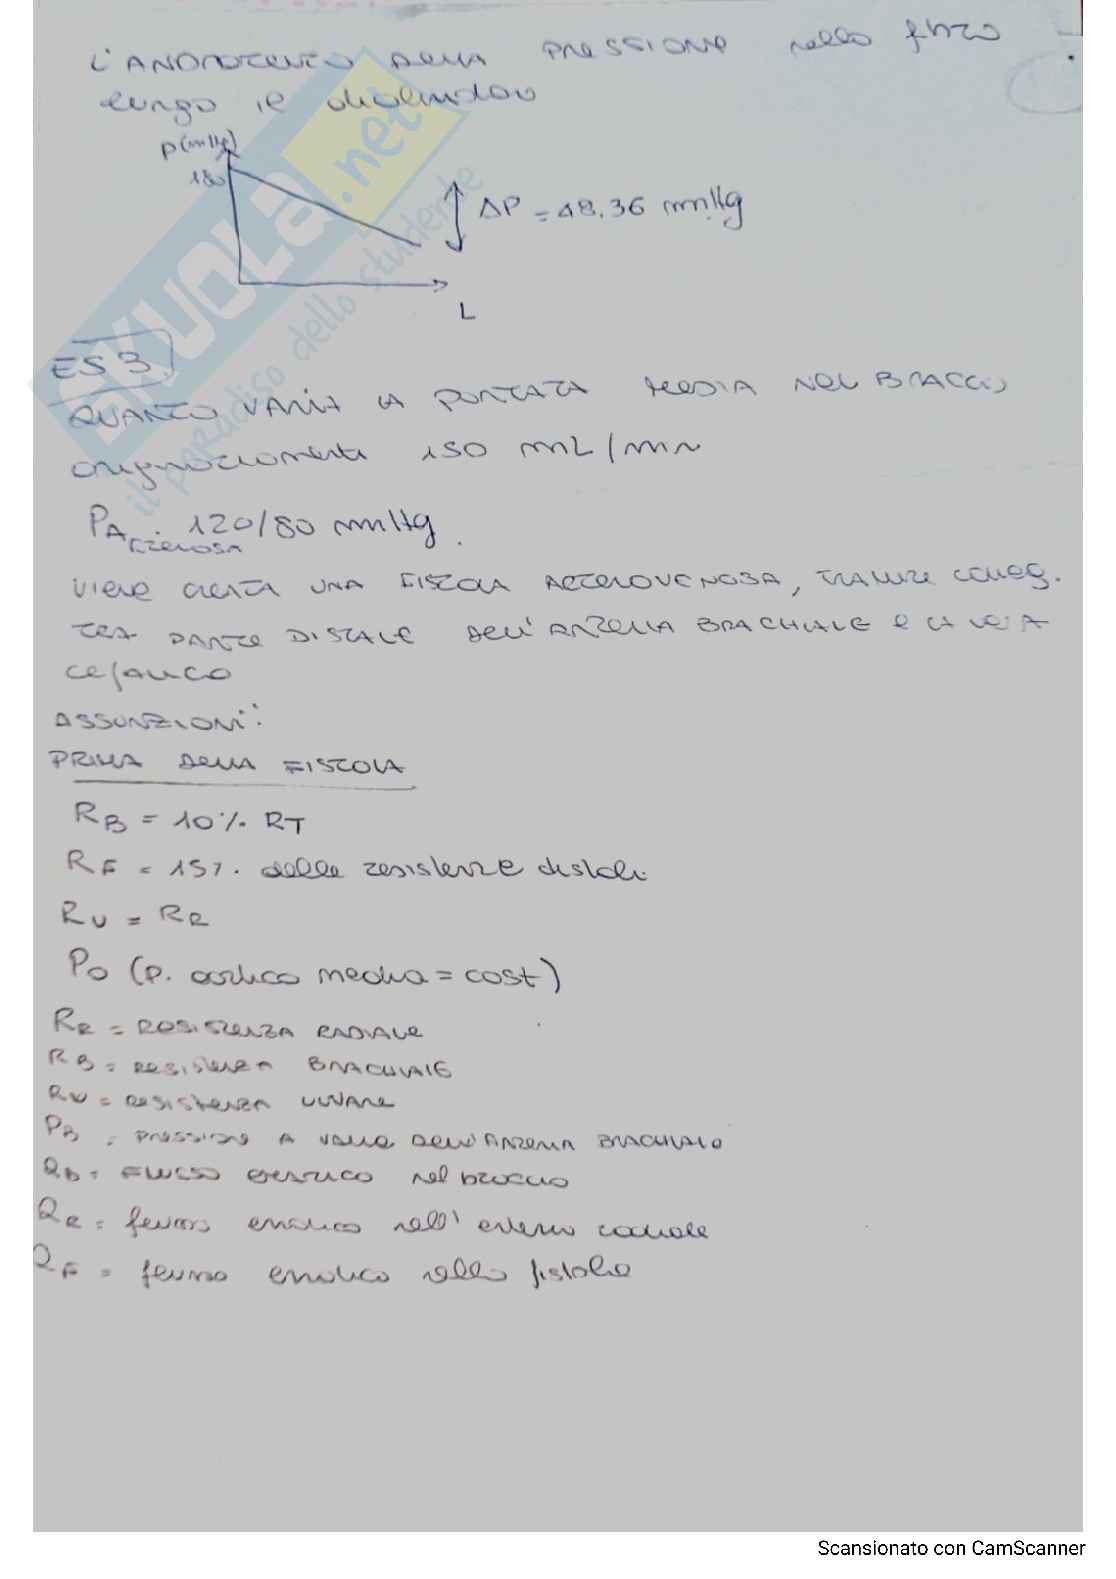 L'ANDAMENTO DELLA PRESSIONE nella fibra
lungo il dializzatore
P(mmHg)
180
ΔP = 48.36 mmHg
L
ES 3
QUANTO VARIA LA PORTATA MEDIA NEL BRACCIO,
originariamente 150 mL/min
PArteriosa: 120/80 mmHg.
VIENE CREATA UNA FISTOLA ARTEROVENOSA, TRAMITE colleg.
TRA PARTE DISTALE DELL'ARTERIA BRACHIALE e LA VENA
cefalica
ASSUNZIONI:
PRIMA DELLA FISTOLA
RB = 10% RT
RF = 15%. delle resistenze distali
RU = RR
PO (p. aortica media = cost)
RR = RESISTENZA RADIALE
RB = RESISTENZA BRACHIALE
RU = RESISTENZA ULNARE
PB = PRESSIONE A VALLE DELL'ARTERIA BRACHIALE
QB = FLUSSO EMATICO nel braccio
QR = flusso ematico nell'arteria radiale
QF = flusso ematico nella fistola
SKUOLA.net
il paradiso dello studente
Scansionato con CamScanner